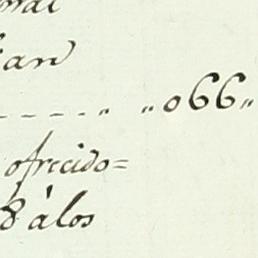 ian
- - - - - „ „ 066 „
ofrecido=
8 á los